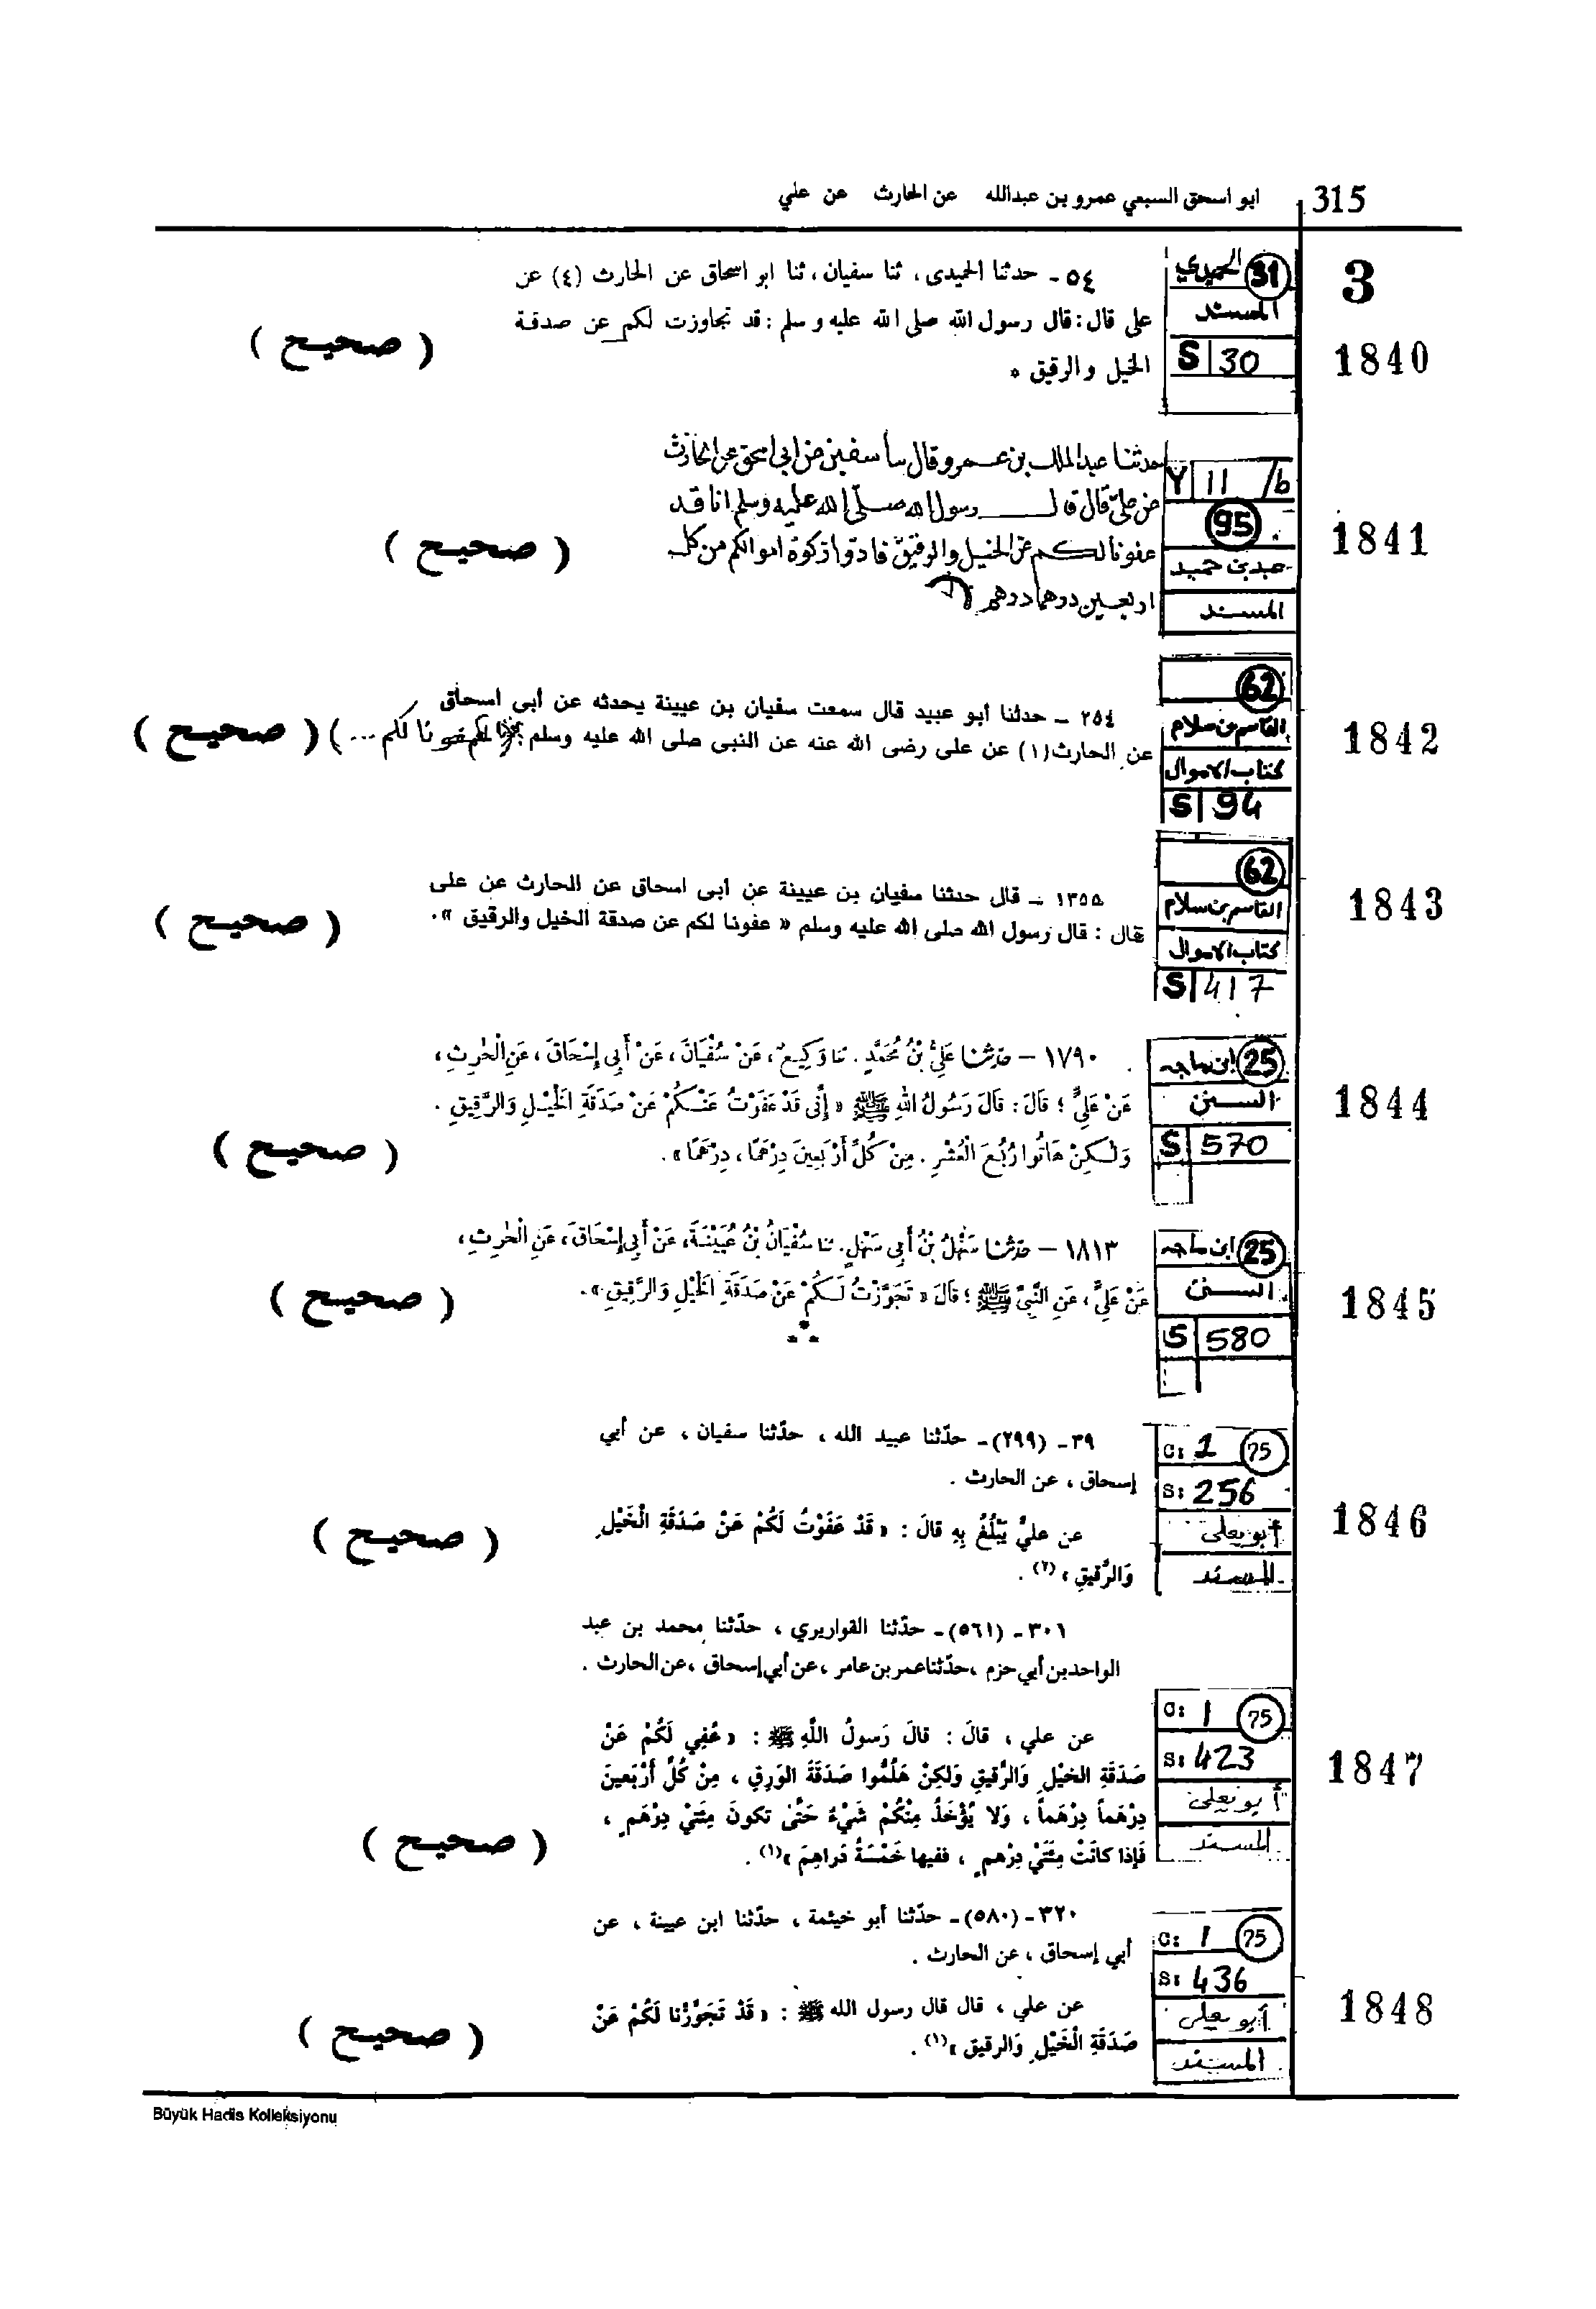 315 ابو اسحق السبعي عمرو بن عبدالله عن الحارث عن علي
3
1840
31 الحميدي
المسند
S 30
٥٤ - حدثنا الحميدى، ثنا سفيان، ثنا ابو اسحاق عن الحارث (٤) عن
على قال: قال رسول الله صلى الله عليه وسلم: قد تجاوزت لكم عن صدقة
الخيل والرقيق *
( صحيح )
1841
Y 11 /b
95
عبد بن حميد
المسند
حدثنا عبد الملك بن عمرو وقال سفين عن ابي اسحق عن الحارث
عن علي قال قال رسول الله صلى الله عليه وسلم انا قد
عفونا لكم عن الخيل والرقيق فادوا زكوة اموالكم من كل
اربعين درهما درهم
( صحيح )
1842
62
القاسم بن سلام
كتاب الاموال
S 94
٢٥٤ - حدثنا أبو عبيد قال سمعت سفيان بن عيينة يحدثه عن أبى اسحاق
عن الحارث (١) عن على رضى الله عنه عن النبى صلى الله عليه وسلم لكم ... )
( صحيح )
1843
62
القاسم بن سلام
كتاب الاموال
S 417
١٣٥٥ - قال حدثنا سفيان بن عيينة عن أبى اسحاق عن الحارث عن على
قال : قال رسول الله صلى الله عليه وسلم « عفونا لكم عن صدقة الخيل والرقيق ».
( صحيح )
1844
25 ابن ماجه
السنن
S 570
١٧٩٠ - حَدَّثَنَا عَلِيُّ بْنُ مُحَمَّدٍ. ثنا وَكِيعٌ، عَنْ سُفْيَانَ، عَنْ أَبِي إِسْحَاقَ، عَنِ الْحٰرِثِ،
عَنْ عَلِيٍّ؛ قَالَ: قَالَ رَسُولُ اللهِ ﷺ « إِنِّي قَدْ عَفَوْتُ عَنْكُمْ عَنْ صَدَقَةِ الْخَيْلِ وَالرَّقِيقِ.
وَلٰكِنْ هَاتُوا رُبُعَ الْعُشْرِ. مِنْ كُلِّ أَرْبَعِينَ دِرْهَمًا، دِرْهَمًا ».
( صحيح )
1845
25 ابن ماجه
السنن
S 580
١٨١٣ - حَدَّثَنَا سَهْلُ بْنُ أَبِي سَهْلٍ. ثنا سُفْيَانُ بْنُ عُيَيْنَةَ، عَنْ أَبِي إِسْحَاقَ، عَنِ الْحٰرِثِ،
عَنْ عَلِيٍّ، عَنِ النَّبِيِّ ﷺ؛ قَالَ « تَجَوَّزْتُ لَكُمْ عَنْ صَدَقَةِ الْخَيْلِ وَالرَّقِيقِ ».
( صحيح )
1846
C: 1 75
S: 256
أبو يعلى
المسند
٣٩ - (٢٩٩) - حدّثنا عبيد الله ، حدّثنا سفيان ، عن أبي
إسحاق ، عن الحارث .
عن عليٍّ يَبْلُغُ بِهِ قالَ : « قَدْ عَفَوْتُ لَكُمْ عَنْ صَدَقَةِ الْخَيْلِ
وَالرَّقِيقِ » (٢) .
( صحيح )
1847
C: 1 75
S: 423
أبو يعلى
المسند
٣٠١ - (٥٦١) - حدّثنا القواريري ، حدّثنا محمد بن عبد
الواحد بن أبي حزم ، حدّثنا عمر بن عامر ، عن أبي إسحاق ، عن الحارث .
عن علي ، قالَ : قالَ رَسولُ اللَّهِ ﷺ : « عُفِي لَكُمْ عَنْ
صَدَقَةِ الخَيْلِ وَالرَّقيقِ وَلكِنْ هَلُمُّوا صَدَقَةَ الوَرِقِ ، مِنْ كُلِّ أَرْبَعينَ
دِرْهَماً دِرْهَماً ، وَلا يُؤْخَذُ مِنْكُمْ شَيْءٌ حَتَّىٰ تكونَ مِئَتَيْ دِرْهَمٍ ،
فَإذا كانَتْ مِئَتَيْ دِرْهمٍ ، ففيها خَمْسَةُ دَراهِمَ » (١) .
( صحيح )
1848
C: 1 75
S: 436
أبو يعلى
المسند
٣٢٠ - (٥٨٠) - حدّثنا أبو خيثمة ، حدّثنا ابن عيينة ، عن
أبي إسحاق ، عن الحارث .
عن علي ، قال قال رسول الله ﷺ : « قَدْ تَجَوَّزْنا لَكُمْ عَنْ
صَدَقَةِ الْخَيْلِ وَالرقيق » (١) .
( صحيح )
Büyük Hadis Kolleksiyonu